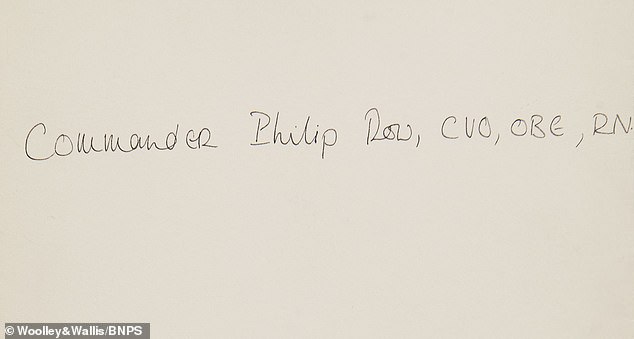 Commander Philip Row, CVO, OBE, RN.
©Woolley&Wallis/BNPS